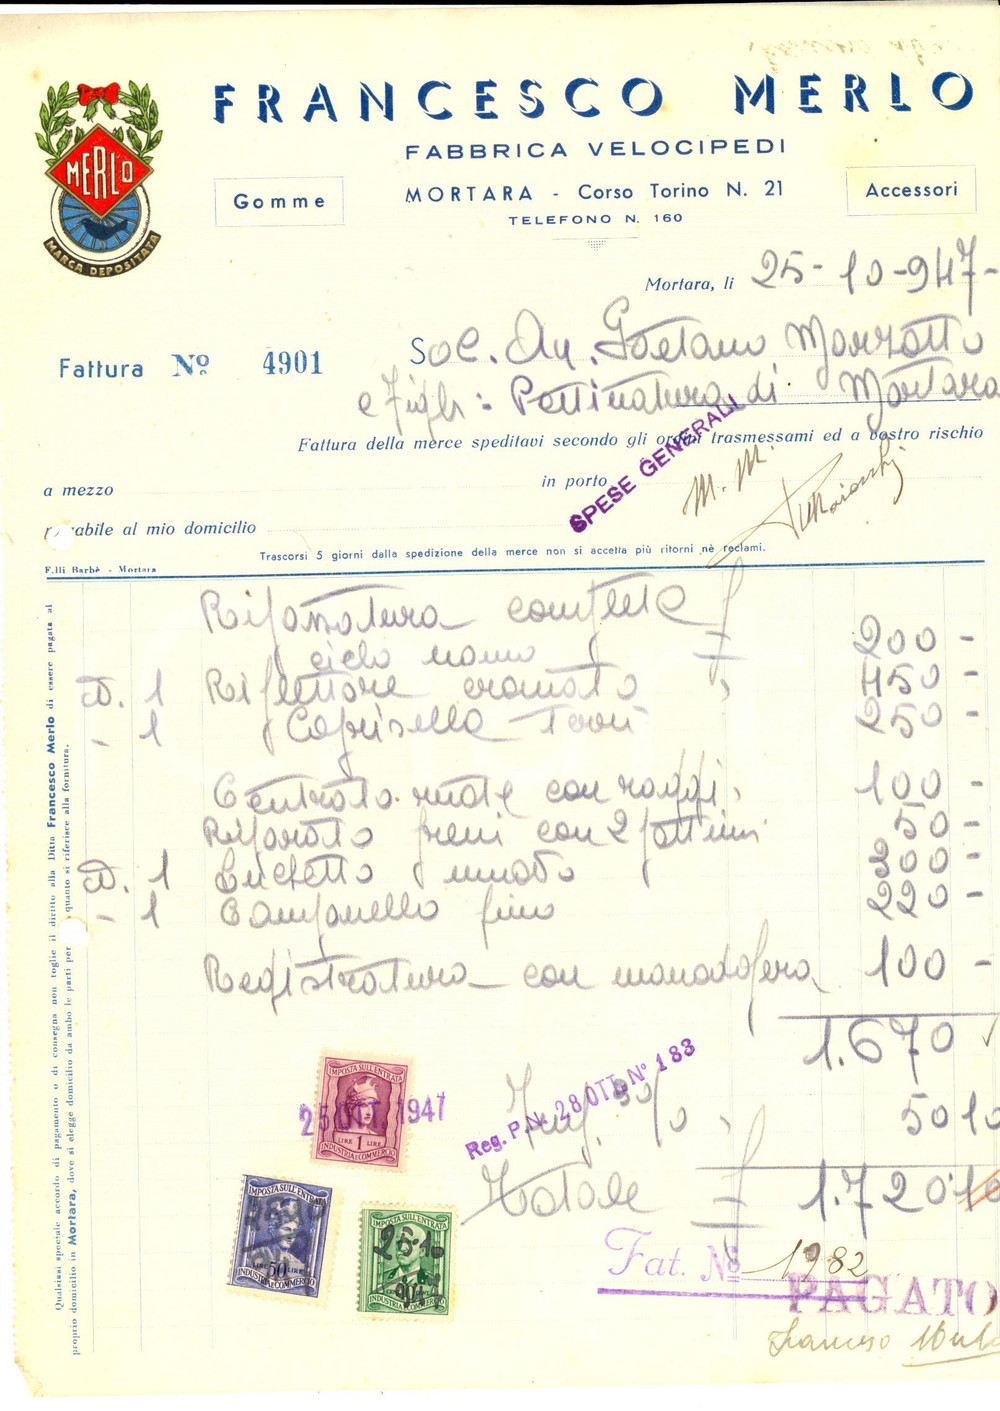 FRANCESCO MERLO
FABBRICA VELOCIPEDI
MERLO
MARCA DEPOSITATA
Gomme
MORTARA - Corso Torino N. 21
Accessori
TELEFONO N. 160
Mortara, li 25-10-947-
Fattura Nº 4901
Soc. An. Gaetano Marzotto
e Figli: Pettinatura di Mortara
Fattura della merce speditavi secondo gli ordini trasmessami ed a vostro rischio
SPESE GENERALI
M. M.
a mezzo
in porto
pagabile al mio domicilio
Trascorsi 5 giorni dalla spedizione della merce non si accetta più ritorni nè reclami.
F.lli Barbè - Mortara
Riparatura completa
ciclo uomo £ 200 -
N. 1 Riflettore cromato " 450 -
- 1 Coprisella 250 -
Centrato ruote con raggi 100 -
Riparato freni con 2 pattini 50 -
N. 1 Luchetto 300 -
- 1 Campanello fino 220 -
Registratura con manodopera 100 -
1.670
Ig. 3% " 50 10
Totale £ 1.720 10
Reg. P.N. 28 OTT. Nº 183
25 OTT. 1947
IMPOSTA SULL'ENTRATA
LIRE 1 LIRE
INDUSTRIA E COMMERCIO
IMPOSTA SULL'ENTRATA
LIRE 50 LIRE
INDUSTRIA E COMMERCIO
IMPOSTA SULL'ENTRATA
25-10
INDUSTRIA E COMMERCIO
Fat. Nº 1282
PAGATO
Francesco Merlo
Qualsiasi speciale accordo di pagamento o di consegna non toglie il diritto alla Ditta Francesco Merlo di essere pagata al
proprio domicilio in Mortara, dove si elegge domicilio da ambo le parti per quanto si riferisce alla fornitura.